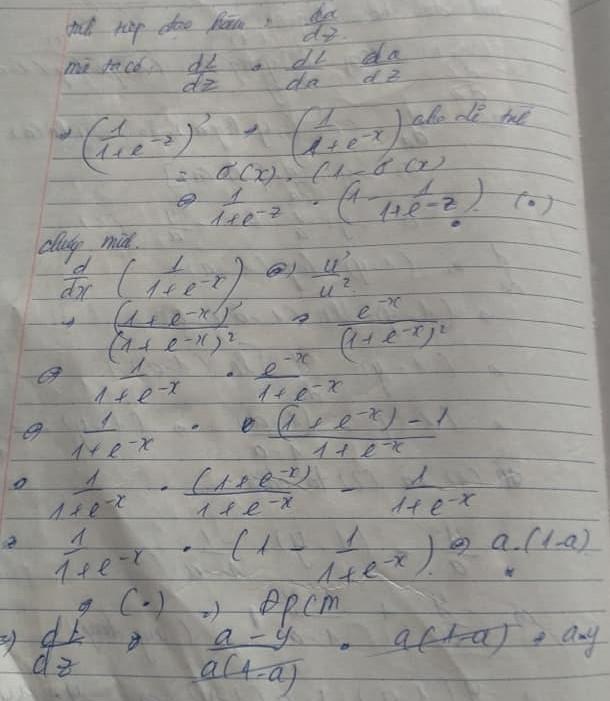 tính tiếp đạo hàm: da/dz
mà ta có dL/dz = dL/da . da/dz
→ (1/(1+e^-z))' → (1/(1+e^-x)) cho dễ
= σ(x) . (1 - σ(x))
⇔ 1/(1+e^-z) . (1 - 1/(1+e^-z)) (•)
chứng minh.
d/dx (1/(1+e^-x)) ⇔ u'/u²
→ (1+e^-x)'/(1+e^-x)² → e^-x/(1+e^-x)²
⇔ 1/(1+e^-x) . e^-x/(1+e^-x)
⇔ 1/(1+e^-x) . ((1+e^-x) - 1)/(1+e^-x)
1/(1+e^-x) . (1+e^-x)/(1+e^-x) - 1/(1+e^-x)
1/(1+e^-x) . (1 - 1/(1+e^-x)) ⇔ a.(1-a)
⇒ (•) ⇒ ĐPCM
⇒ dL/dz ⇒ (a-y)/(a(1-a)) . a(1-a) = a-y